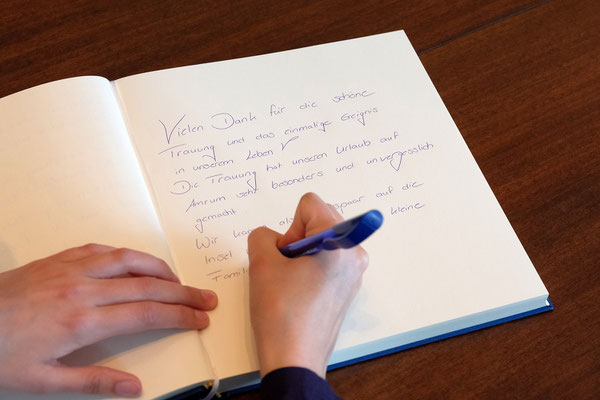 Vielen Dank für die schöne
Trauung und das einmalige Ereignis
in unserem Leben
Die Trauung hat unseren Urlaub auf
Amrum sehr besonders und unvergesslich
gemacht
Wir auf die
Insel kleine